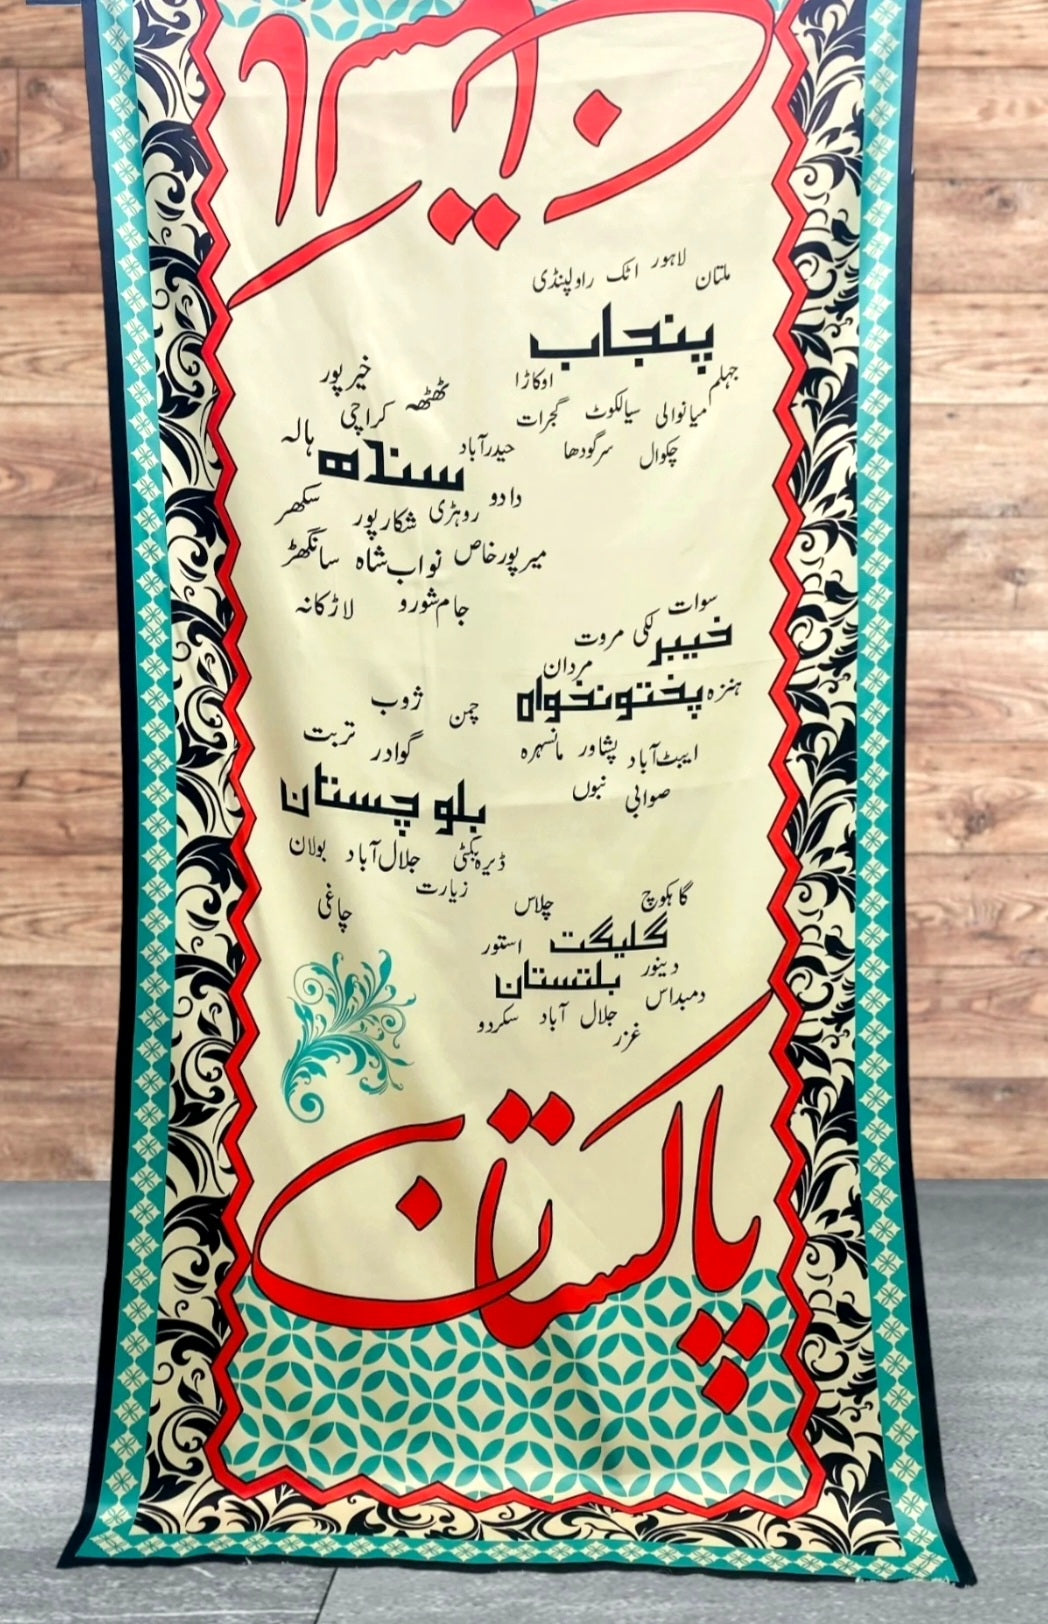 ملتان لاہور اٹک راولپنڈی
پنجاب
جہلم اوکاڑا
میانوالی سیالکوٹ گجرات
چکوال سرگودھا
خیرپور
ٹھٹھہ کراچی ہالہ
حیدرآباد
سندھ
دادو روہڑی شکارپور سکھر
میرپورخاص نواب شاہ سانگھڑ
جام شورو لاڑکانہ
سوات
خیبر لکی مروت
مردان
ہنزہ پختونخواہ
ایبٹ آباد پشاور مانسہرہ
صوابی
چمن ژوب
گوادر تربت
بلوچستان
ڈیرہ بگٹی جلال آباد بولان
زیارت
چاغی
گاہکوچ چلاس
گلیگت استور
دینور
بلتستان
دمبداس
جلال آباد سکردو
غزر
پاکستان